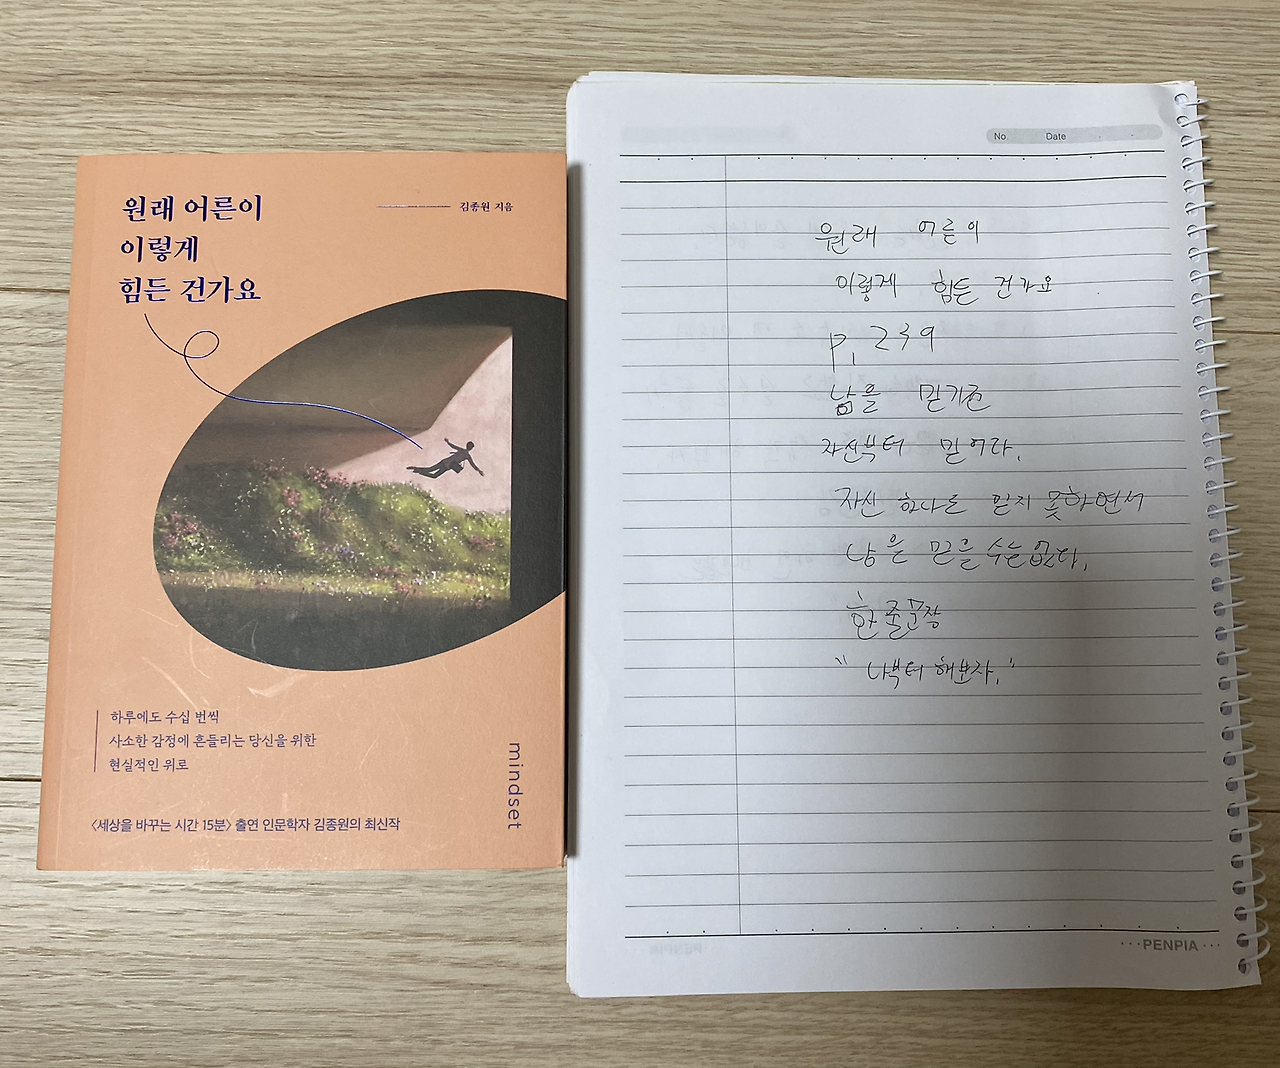 원래 어른이
이렇게
힘든 건가요
김종원 지음
하루에도 수십 번씩
사소한 감정에 흔들리는 당신을 위한
현실적인 위로
mindset
〈세상을 바꾸는 시간 15분〉 출연 인문학자 김종원의 최신작
No. Date
원래 어른이
이렇게 힘든 건가요
p, 239
남을 믿기전
자신부터 믿어라.
자신 하나도 믿지 못하면서
남을 믿을 수는 없다.
한줄문장
"나부터 해보자."
···PENPIA···